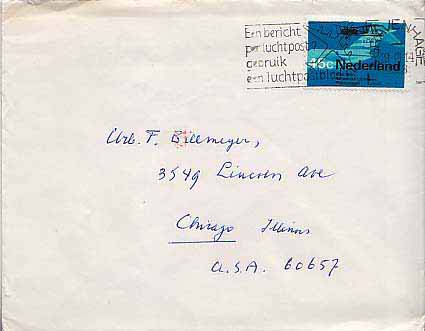 Een bericht
per luchtpost?
gebruik
een luchtpostblad
HAGE
45c Nederland
F. Billemeyer,
3549 Lincoln Ave
Chicago Illinois
U.S.A. 60657